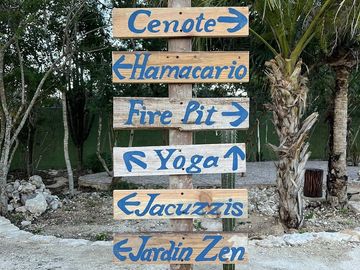 Cenote →
← Hamacario
Fire Pit →
↖ Yoga ↑
← Jacuzzis
← Jardin Zen →